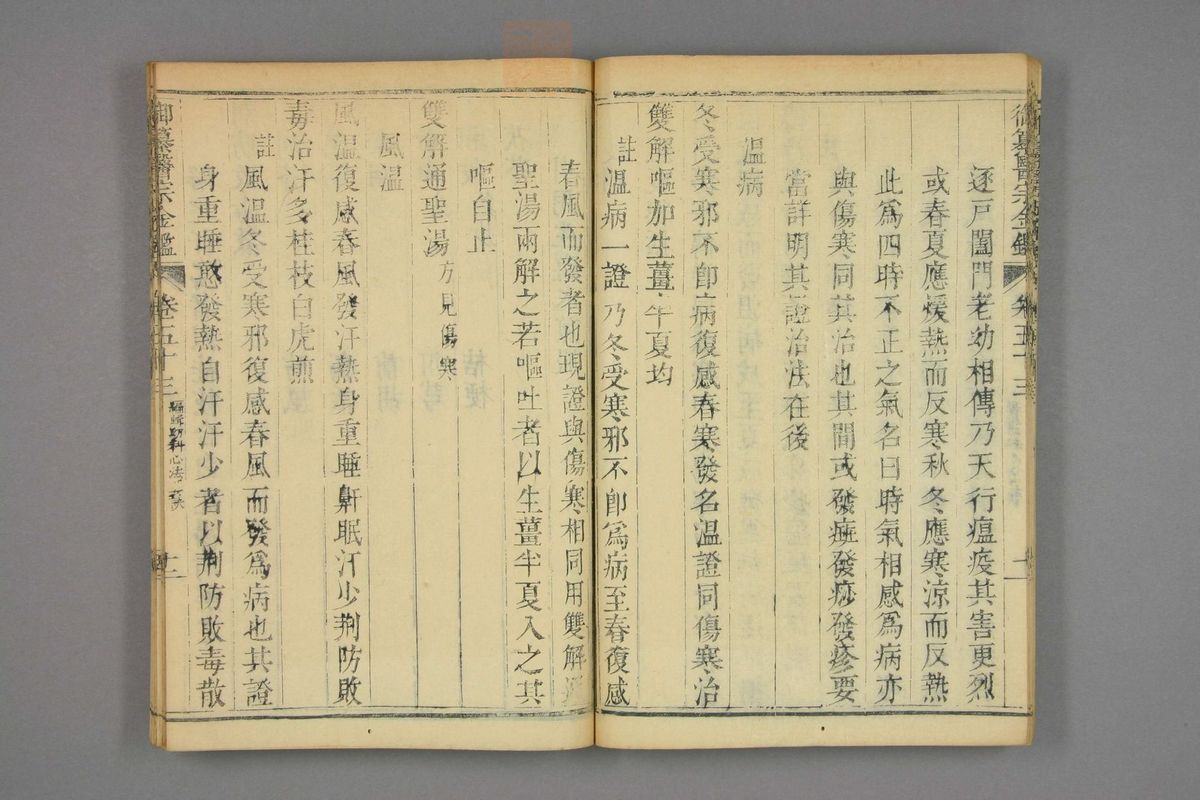 逐戸闔門老幼相傳乃天行瘟疫其害更烈
或春夏應煖熱而反寒秋冬應寒涼而反熱
此爲四時不正之氣名曰時氣相感爲病亦
與傷寒同其治也其間或發癍發痧發疹要
當詳明其證治法在後
溫病
冬受寒邪不卽病復感春寒發名溫證同傷寒治
雙解嘔加生薑半夏均
註溫病一證乃冬受寒邪不卽爲病至春復感
春風而發者也現證與傷寒相同用雙解通
聖湯兩解之若嘔吐者以生薑半夏入之其
嘔自止
雙解通聖湯方見傷寒
風溫
風溫復感春風發汗熱身重睡鼾眠汗少荆防敗
毒治汗多桂枝白虎煎
註風溫冬受寒邪復感春風而發爲病也其證
身重睡憨發熱自汗汗少者以荆防敗毒散
御纂醫宗金鑑 卷五十三 編輯幼科心法要訣 十二